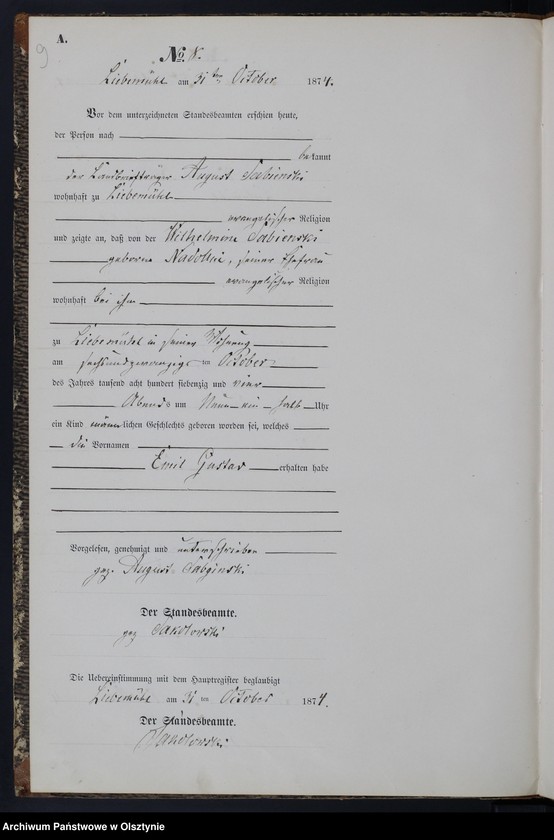 A.
9
No. 8.
Liebemühl am 31 ten October 1874.
Vor dem unterzeichneten Standesbeamten erschien heute,
der Person nach
bekannt
der Landbriefträger August Sabienski
wohnhaft zu Liebemühl
evangelischer Religion
und zeigte an, daß von der Wilhelmine Sabienski
geborne Nadollni, seiner Ehefrau
evangelischer Religion
wohnhaft bei ihm
zu Liebemühl in seiner Wohnung
am sechsundzwanzigsten October
des Jahres tausend acht hundert siebenzig und vier
Abends um Neun ein halb Uhr
ein Kind männlichen Geschlechts geboren worden sei, welches
die Vornamen
Emil Gustav erhalten habe
Vorgelesen, genehmigt und unterschrieben
gez. August Sabginski
Der Standesbeamte.
gez
Die Uebereinstimmung mit dem Hauptregister beglaubigt
Liebemühl am 31 ten October 1874.
Der Standesbeamte.
Archiwum Państwowe w Olsztynie